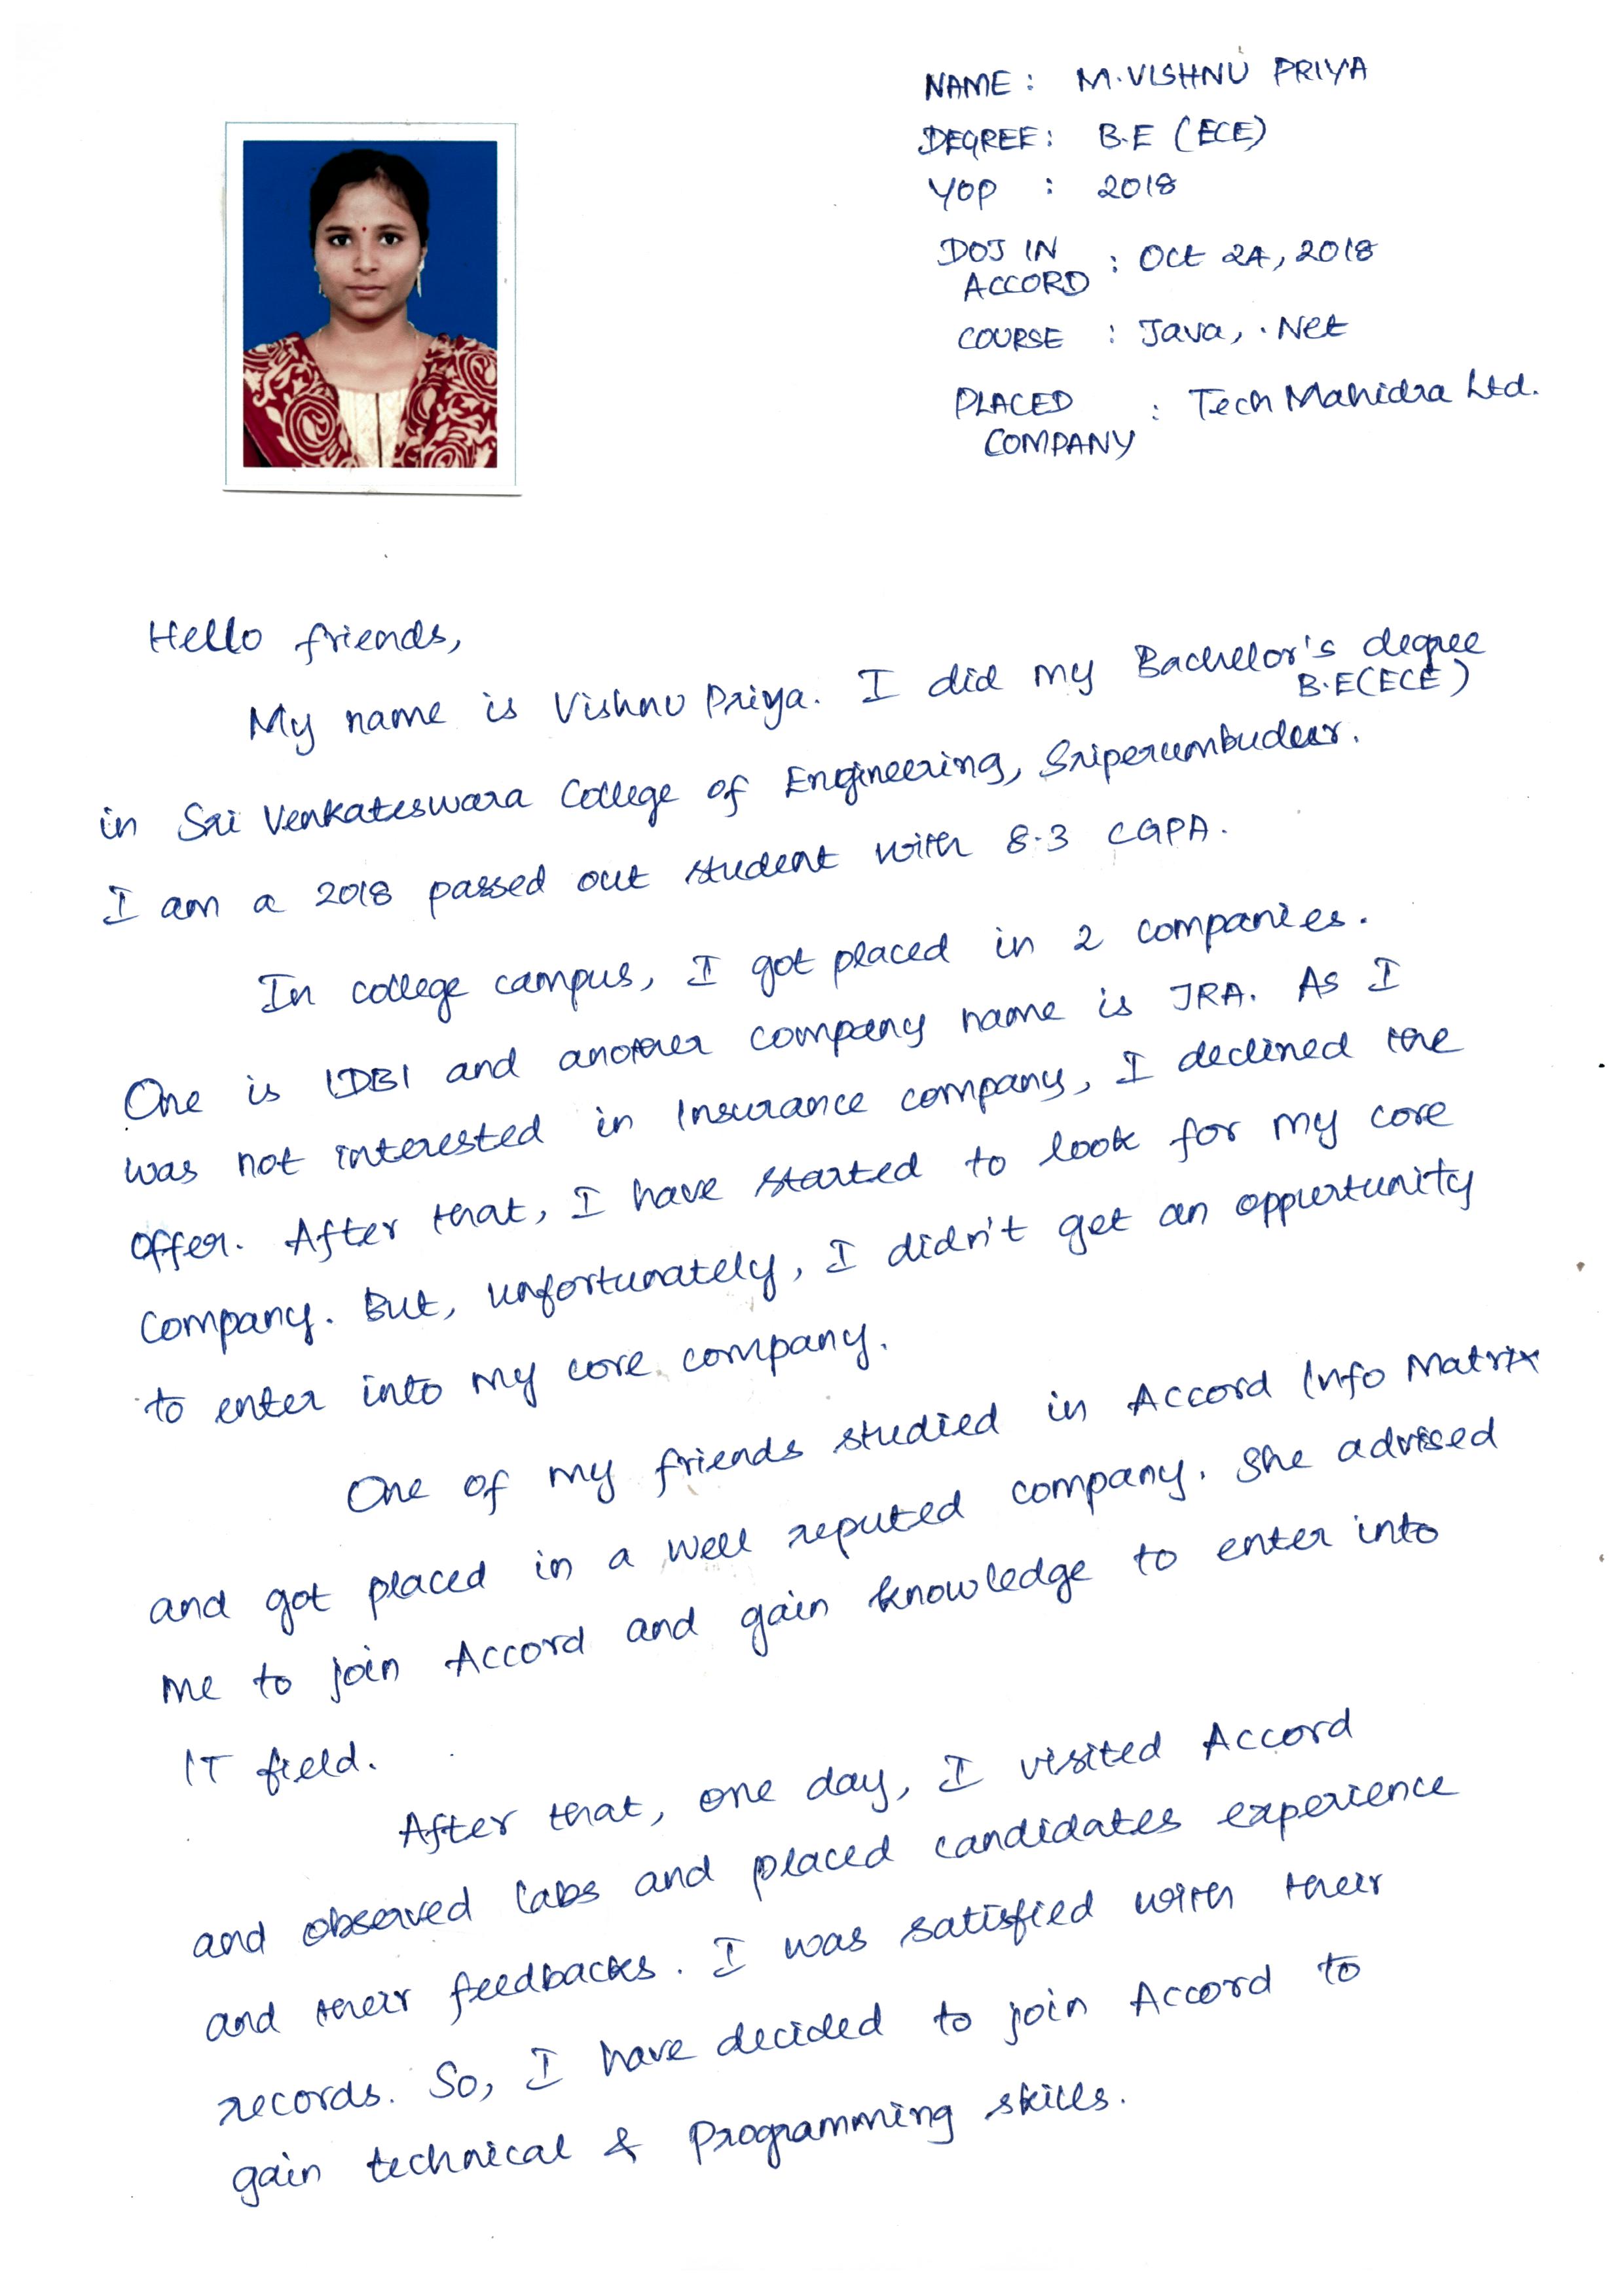 NAME : M.VISHNU PRIYA
DEGREE : B.E (ECE)
YOP : 2018
DOJ IN
ACCORD : Oct 24, 2018
COURSE : Java, .Net
PLACED
COMPANY : Tech Mahidra Ltd.
Hello friends,
My name is Vishnu Priya. I did my Bachelor's degree
B.E(ECE)
in Sri Venkateswara College of Engineering, Sriperumbudur.
I am a 2018 passed out student with 8.3 CGPA.
In college campus, I got placed in 2 companies.
One is IDBI and another company name is JRA. As I
was not interested in Insurance company, I declined the
offer. After that, I have started to look for my core
company. But, unfortunately, I didn't get an oppurtunity
to enter into my core company.
One of my friends studied in Accord Info Matrix
and got placed in a well reputed company. She advised
me to join Accord and gain knowledge to enter into
IT field.
After that, one day, I visited Accord
and observed labs and placed candidates experience
and their feedbacks. I was satisfied with their
records. So, I have decided to join Accord to
gain technical & Programming skills.